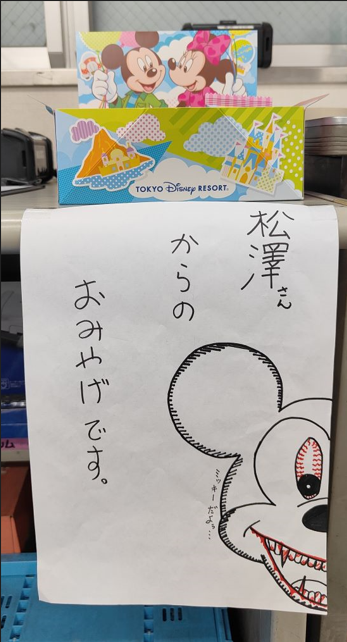 TOKYO Disney RESORT.
松澤さん
からの
おみやげです。
ミッキーだよぅ…